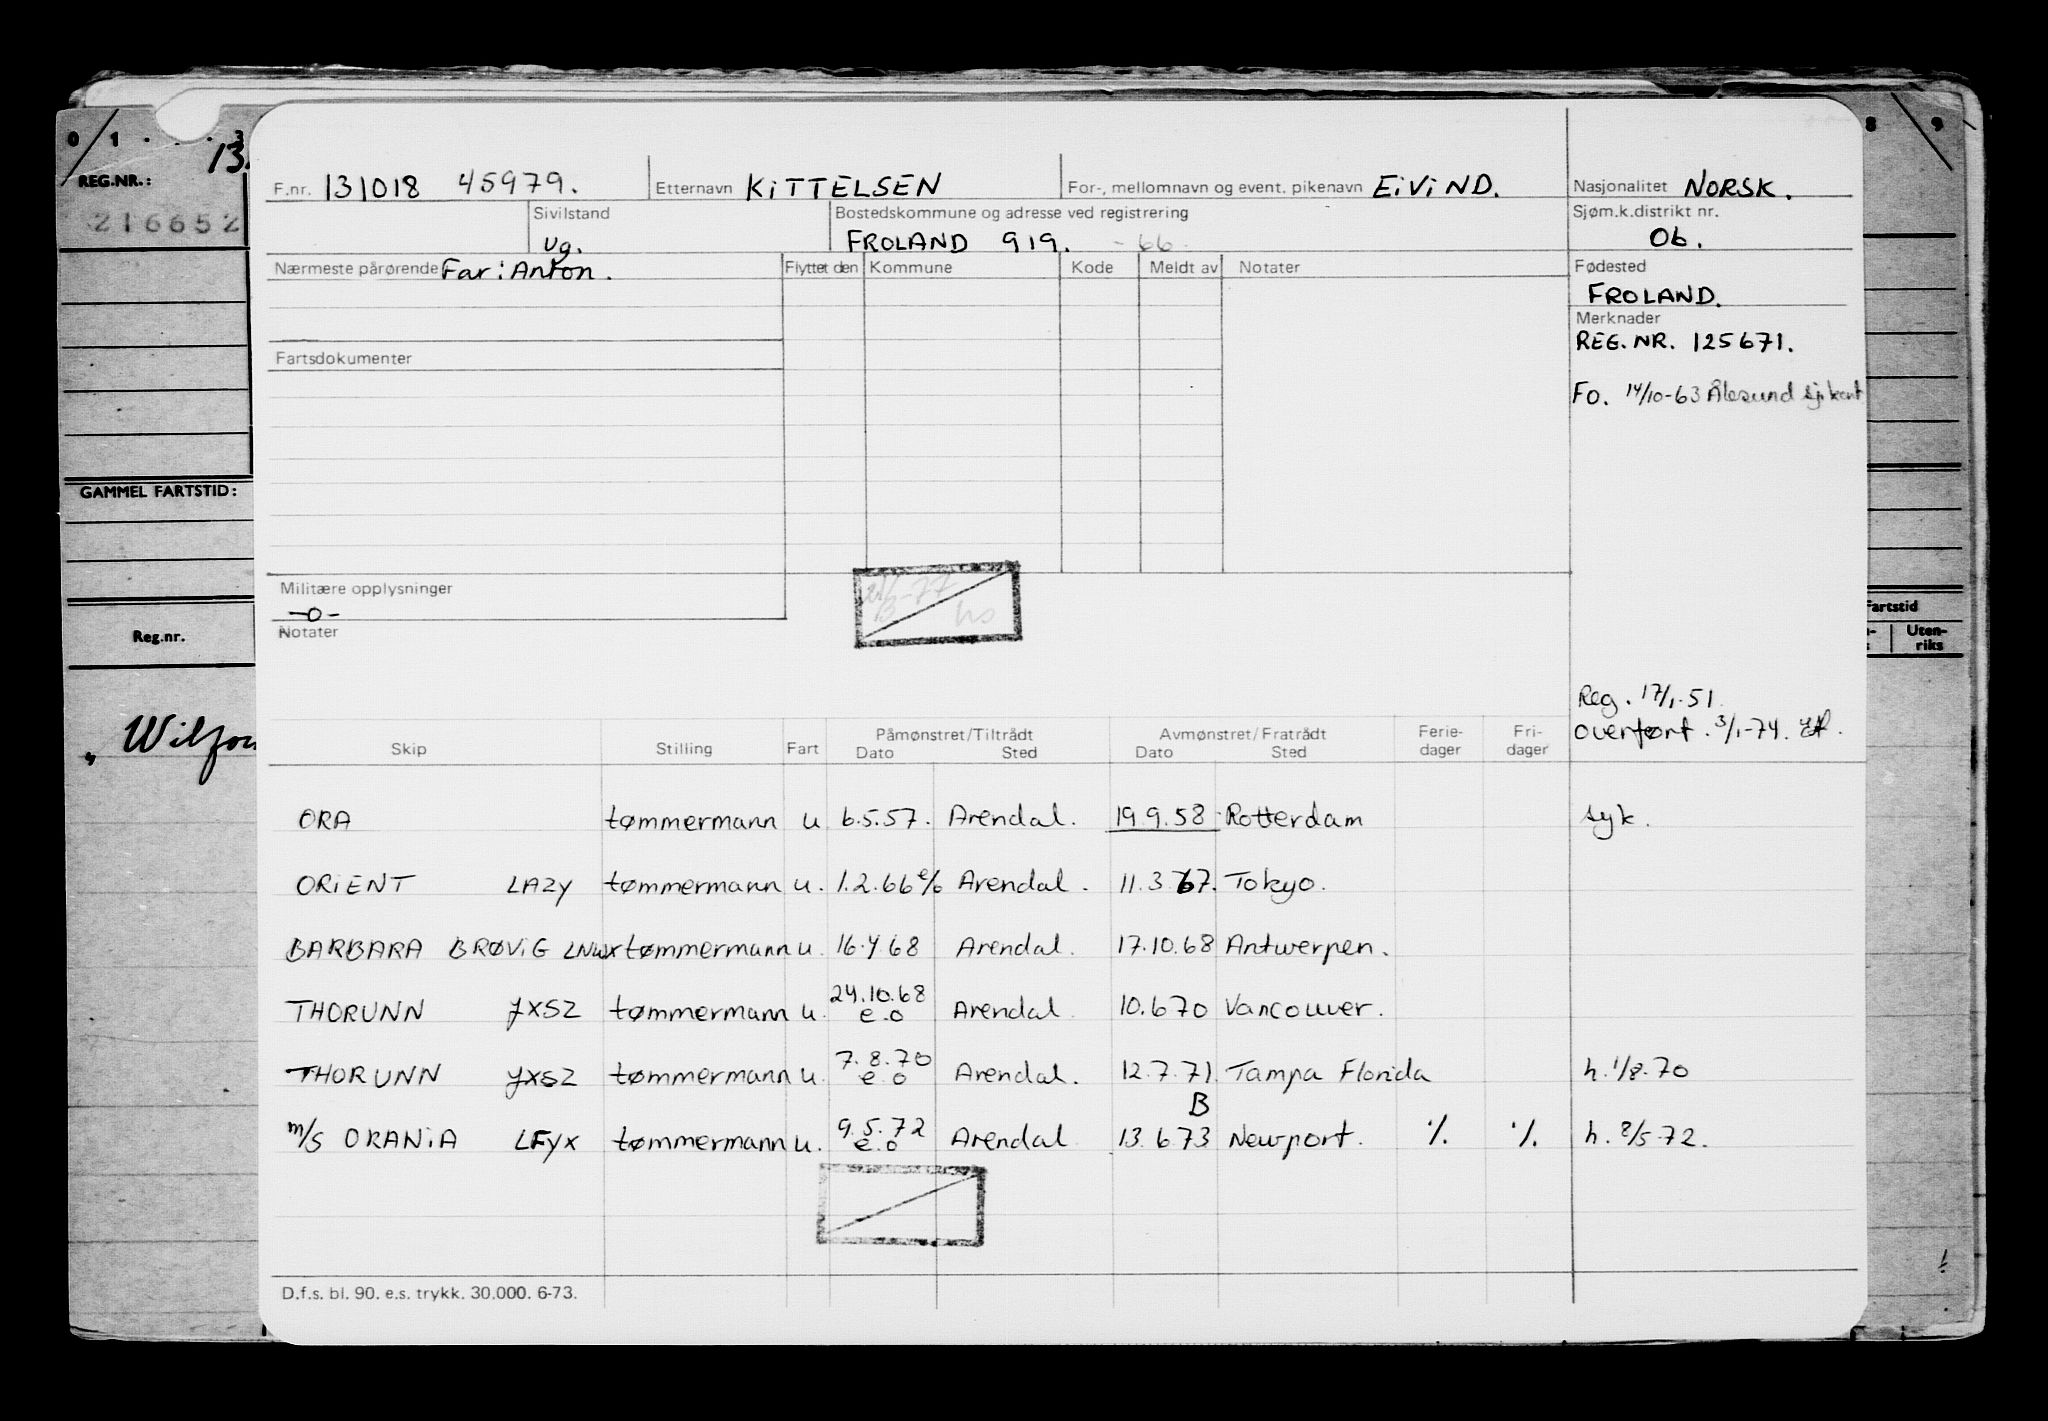 0 1 . . . 3
8 9
13.
REG.NR.:
216652
F.nr. 131018 45979. Etternavn KITTELSEN For-, mellomnavn og event. pikenavn EIVIND. Nasjonalitet NORSK.
Sivilstand Bostedskommune og adresse ved registrering Sjøm.k.distrikt nr.
ug. FROLAND 919. -66. 06.
Nærmeste pårørende Far: Anton. Flyttet den Kommune Kode Meldt av Notater Fødested
FROLAND.
Merknader
REG.NR. 125671.
Fartsdokumenter
FO. 14/10-63 Ålesund sj.kont
GAMMEL FARTSTID:
Militære opplysninger
-0-
Notater
Reg.nr.
Fartstid
Uten-
riks
Reg. 17/1-51.
overført. 3/1-74.
Wilfor
Skip Stilling Fart Påmønstret/Tiltrådt Dato Sted Avmønstret/Fratrådt Dato Sted Ferie-dager Fri-dager
ORA tømmermann u 6.5.57. Arendal. 19.9.58 Rotterdam syk.
ORIENT LAZY tømmermann u. 1.2.66 e/o Arendal. 11.3.67. Tokyo.
BARBARA BRØVIG LNWX tømmermann u. 16.4 68 Arendal. 17.10.68 Antwerpen.
THORUNN JXSZ tømmermann u. 24.10.68 e.o Arendal 10.6 70 Vancouver.
THORUNN JXSZ tømmermann u. 7.8.70 e.o Arendal. 12.7.71 Tampa Florida h. 1/8.70
B
m/s ORANIA LFYX tømmermann u. 9.5.72 e.o Arendal 13.6 73 Newport. % % h. 8/5-72.
D.f.s. bl. 90. e.s. trykk. 30.000. 6-73.